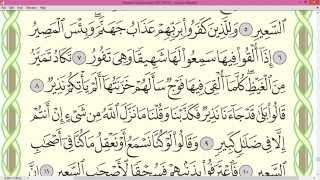 السَّعِيرِ ٥ وَلِلَّذِينَ كَفَرُوا۟ بِرَبِّهِمْ عَذَابُ جَهَنَّمَ ۖ وَبِئْسَ الْمَصِيرُ
٦ إِذَآ أُلْقُوا۟ فِيهَا سَمِعُوا۟ لَهَا شَهِيقًا وَهِىَ تَفُورُ ٧ تَكَادُ تَمَيَّزُ
مِنَ الْغَيْظِ ۖ كُلَّمَآ أُلْقِىَ فِيهَا فَوْجٌ سَأَلَهُمْ خَزَنَتُهَآ أَلَمْ يَأْتِكُمْ نَذِيرٌ ٨
قَالُوا۟ بَلَىٰ قَدْ جَآءَنَا نَذِيرٌ فَكَذَّبْنَا وَقُلْنَا مَا نَزَّلَ اللَّهُ مِن شَىْءٍ إِنْ أَنتُمْ
إِلَّا فِى ضَلَٰلٍ كَبِيرٍ ٩ وَقَالُوا۟ لَوْ كُنَّا نَسْمَعُ أَوْ نَعْقِلُ مَا كُنَّا فِىٓ أَصْحَٰبِ
السَّعِيرِ ١٠ فَاعْتَرَفُوا۟ بِذَنۢبِهِمْ فَسُحْقًا لِّأَصْحَٰبِ السَّعِيرِ ١١ إِنَّ